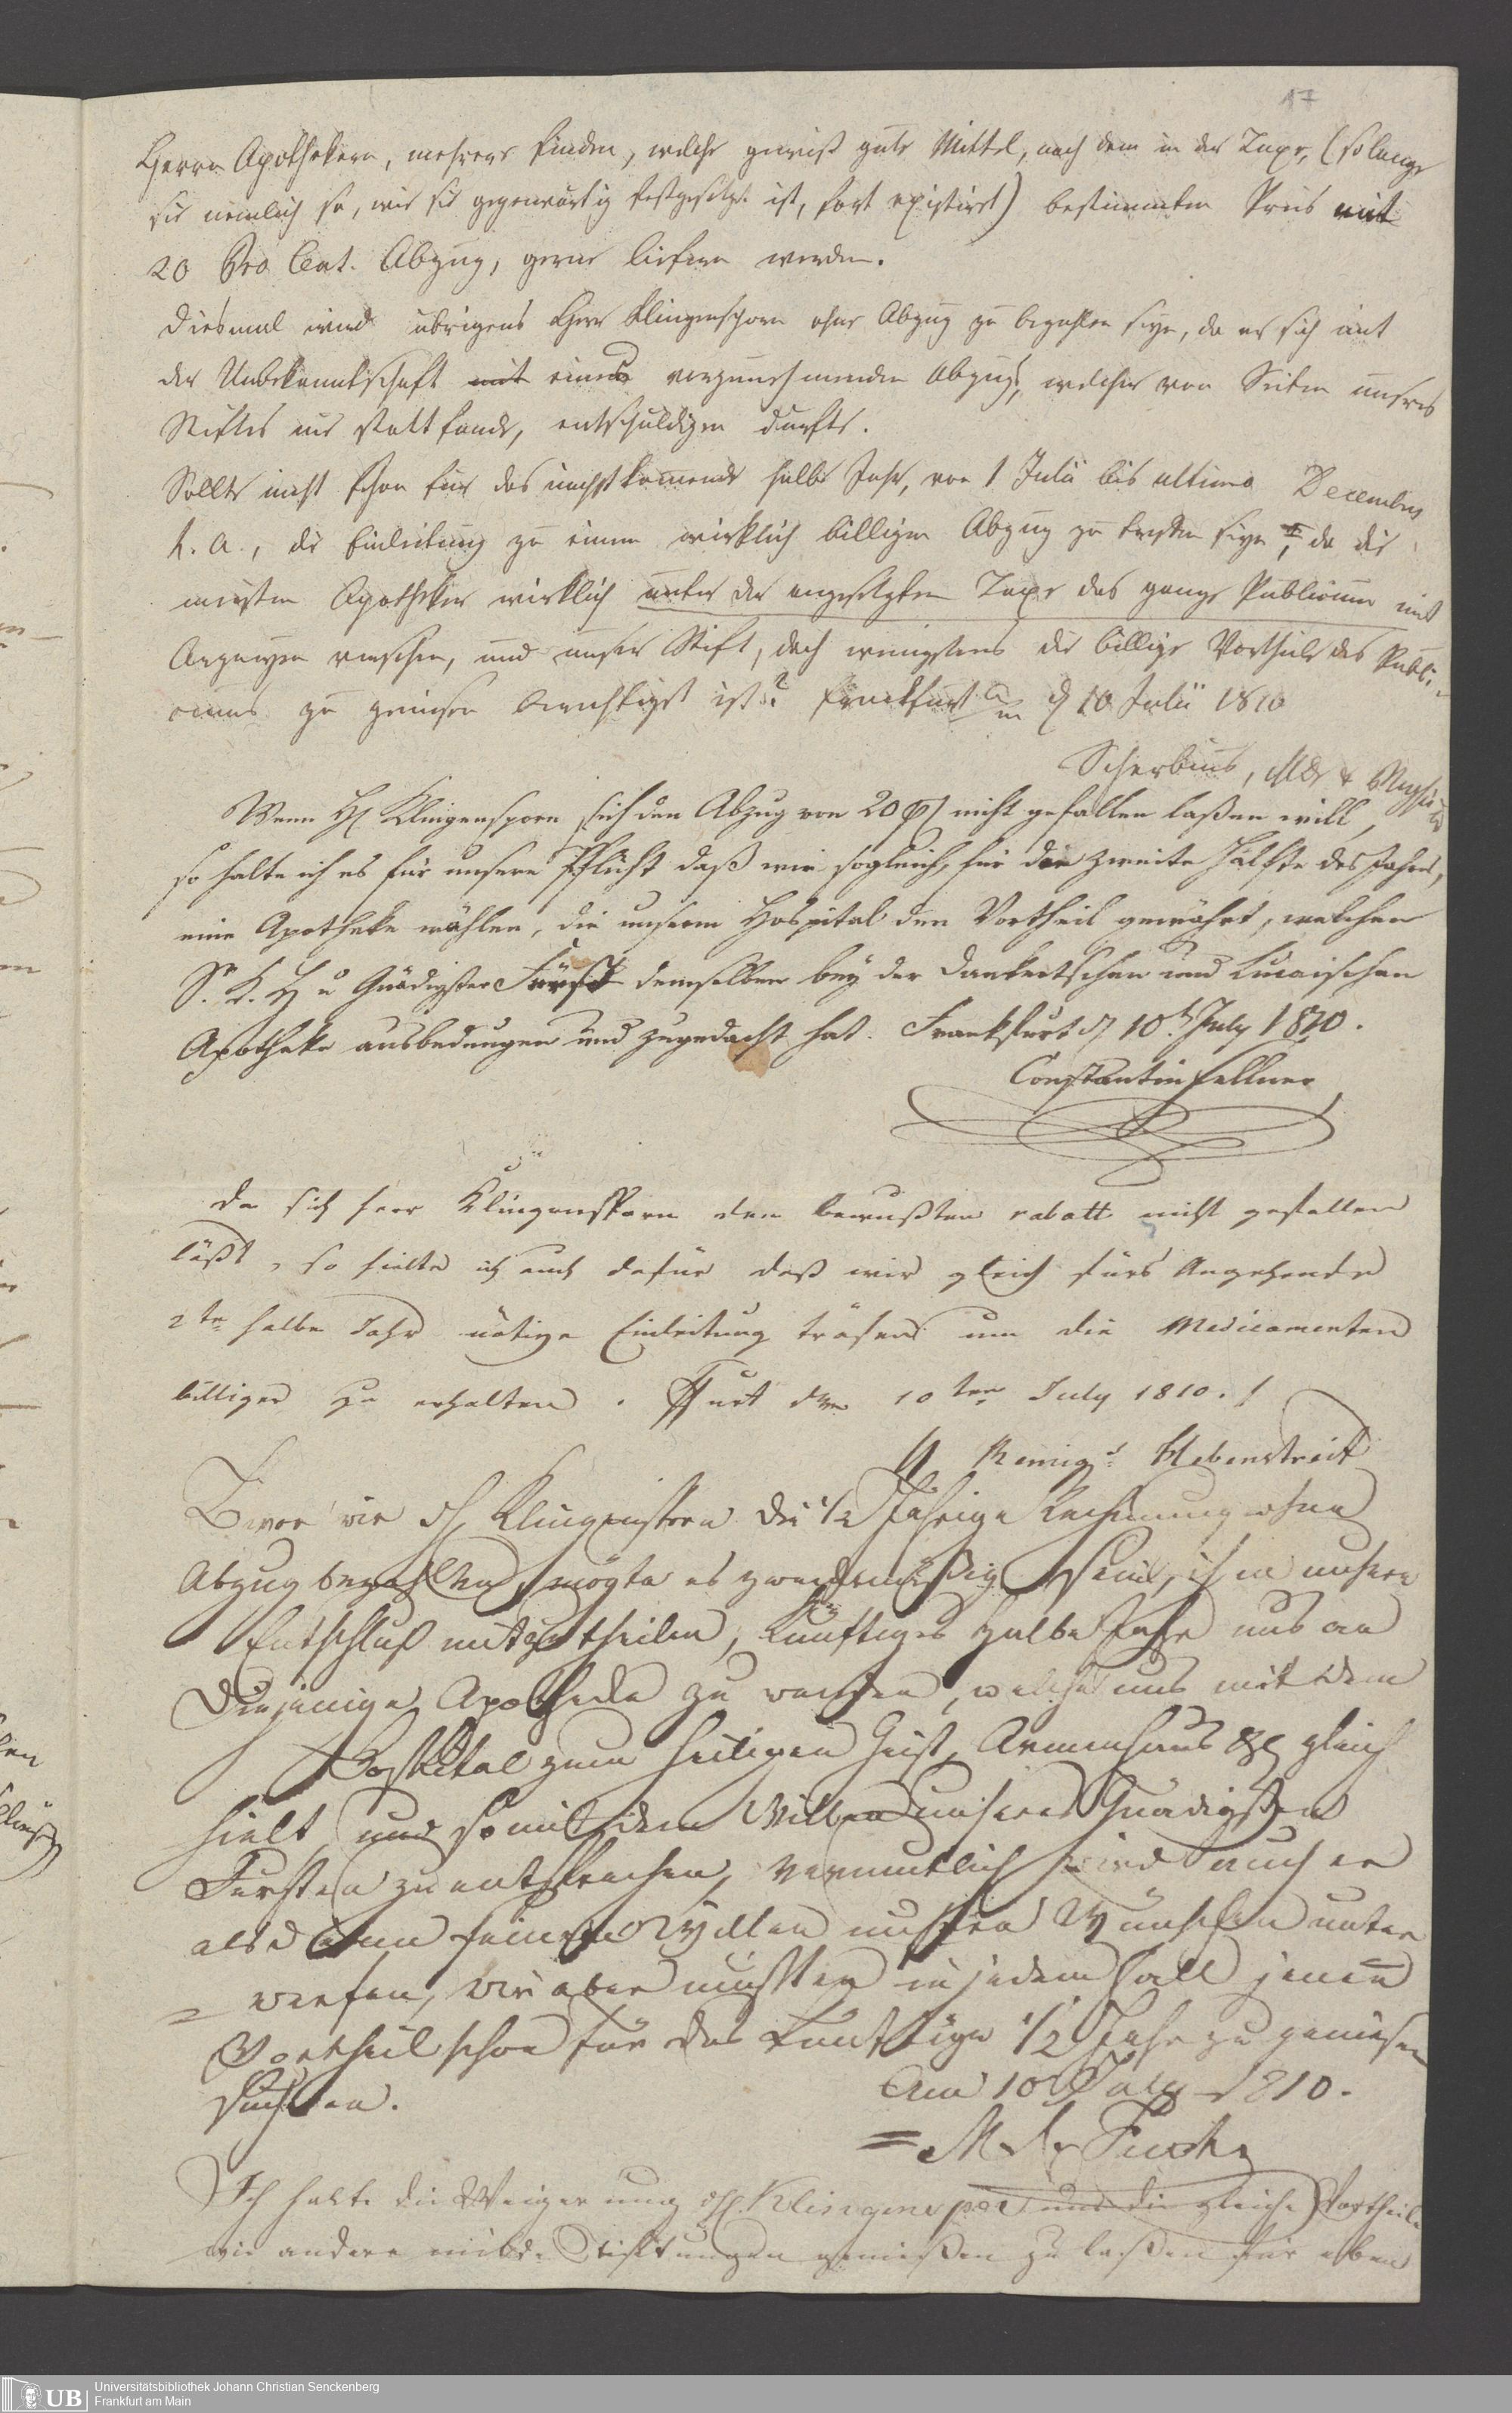 17
Herrn Apothekern, mehrere finden, welche gewiß gute Mittel, nach dem in der Taxe, (solange
sie nemlich so, wie sie gegenwärtig festgesetzt ist, fort existirt) bestimmten Preis mit
20 Pro Cent. Abzug, gerne liefern werden.
Diesmal wird übrigens Herr Klingensporn ohne Abzug zu bezahlen seyn, da er sich mit
der Unbekanntschaft mit eines vorzunehmenden Abzugs, welcher von Seiten unsres
Stiftes nie statt fande, entschuldigen durfte.
Sollte nicht schon für das nächstkommende halbe Jahr, von 1 Julii bis ultimo Decembris
h. a., die Einleitung zu einem wirklich billigen Abzug zu treffen seyn, da die
meisten Apotheker wirklich unter der angesetzten Taxe das ganze Publicum mit
Arzneyen versehen, und unser Stift, doch wenigstens die billige Vortheile des Publi-
cums zu geniesen berechtigt ist? Frankfurt a/m d 10 Julii 1810
Scherbius, MDr & Physicus
Wenn H Klingensporn sich den Abzug von 20 pC nicht gefallen laßen will,
so halte ich es für unsere Pflicht daß wir sogleich, für die zweite Hälfte des Jahres,
eine Apotheke wählen, die unserm Hospital den Vortheil gewährt, welchen
Sr. K. H u Gnädigster Fürst demselben bey der Dankertschen und Lucaischen
Apotheke ausbedungen und zugedacht hat. Frankfurt d 10t July 1810.
Constantin Fellner
Da sich Herr Klingensporn den bewußten rabatt nicht gefallen
läßt, so hielte ich auch dafür daß wir gleich fürs Angehende
2te halbe Jahr nötige Einleitung träfen um die Medicamenten
billiger zu erhalten. Ffurt den 10ten July 1810.
Remigs Hebenstreit
Bevor wir H Klingensporn die 1/2 Jährige Rechnung ohne
Abzug bezahlen, mögte es zweckmäßig seyn, ihm unsern
Entschluß mitzutheilen, künftiges halbe Jahr uns an
diejenige Apotheke zu wenden, welche uns mit dem
Hospital zum heiligen Geist, Armenhaus &c gleich
hielt, und somit dem Willen unseres Gnädigsten
Fürsten zu entsprechen, vermutlich wird auch er
alsdann seinen Willen unsern Wünschen unter
werfen, wir aber müssten in jedem Fall jenen
Vortheil schon für das künftige 1/2 Jahr zu geniesen
suchen. Am 10 July 1810.
M Fuchs
Ich halte die Weigerung H. Klingenspor uns die gleiche Vortheile
wie andere milde Stiftungen genießen zu laßen für eben
UB Universitätsbibliothek Johann Christian Senckenberg
Frankfurt am Main